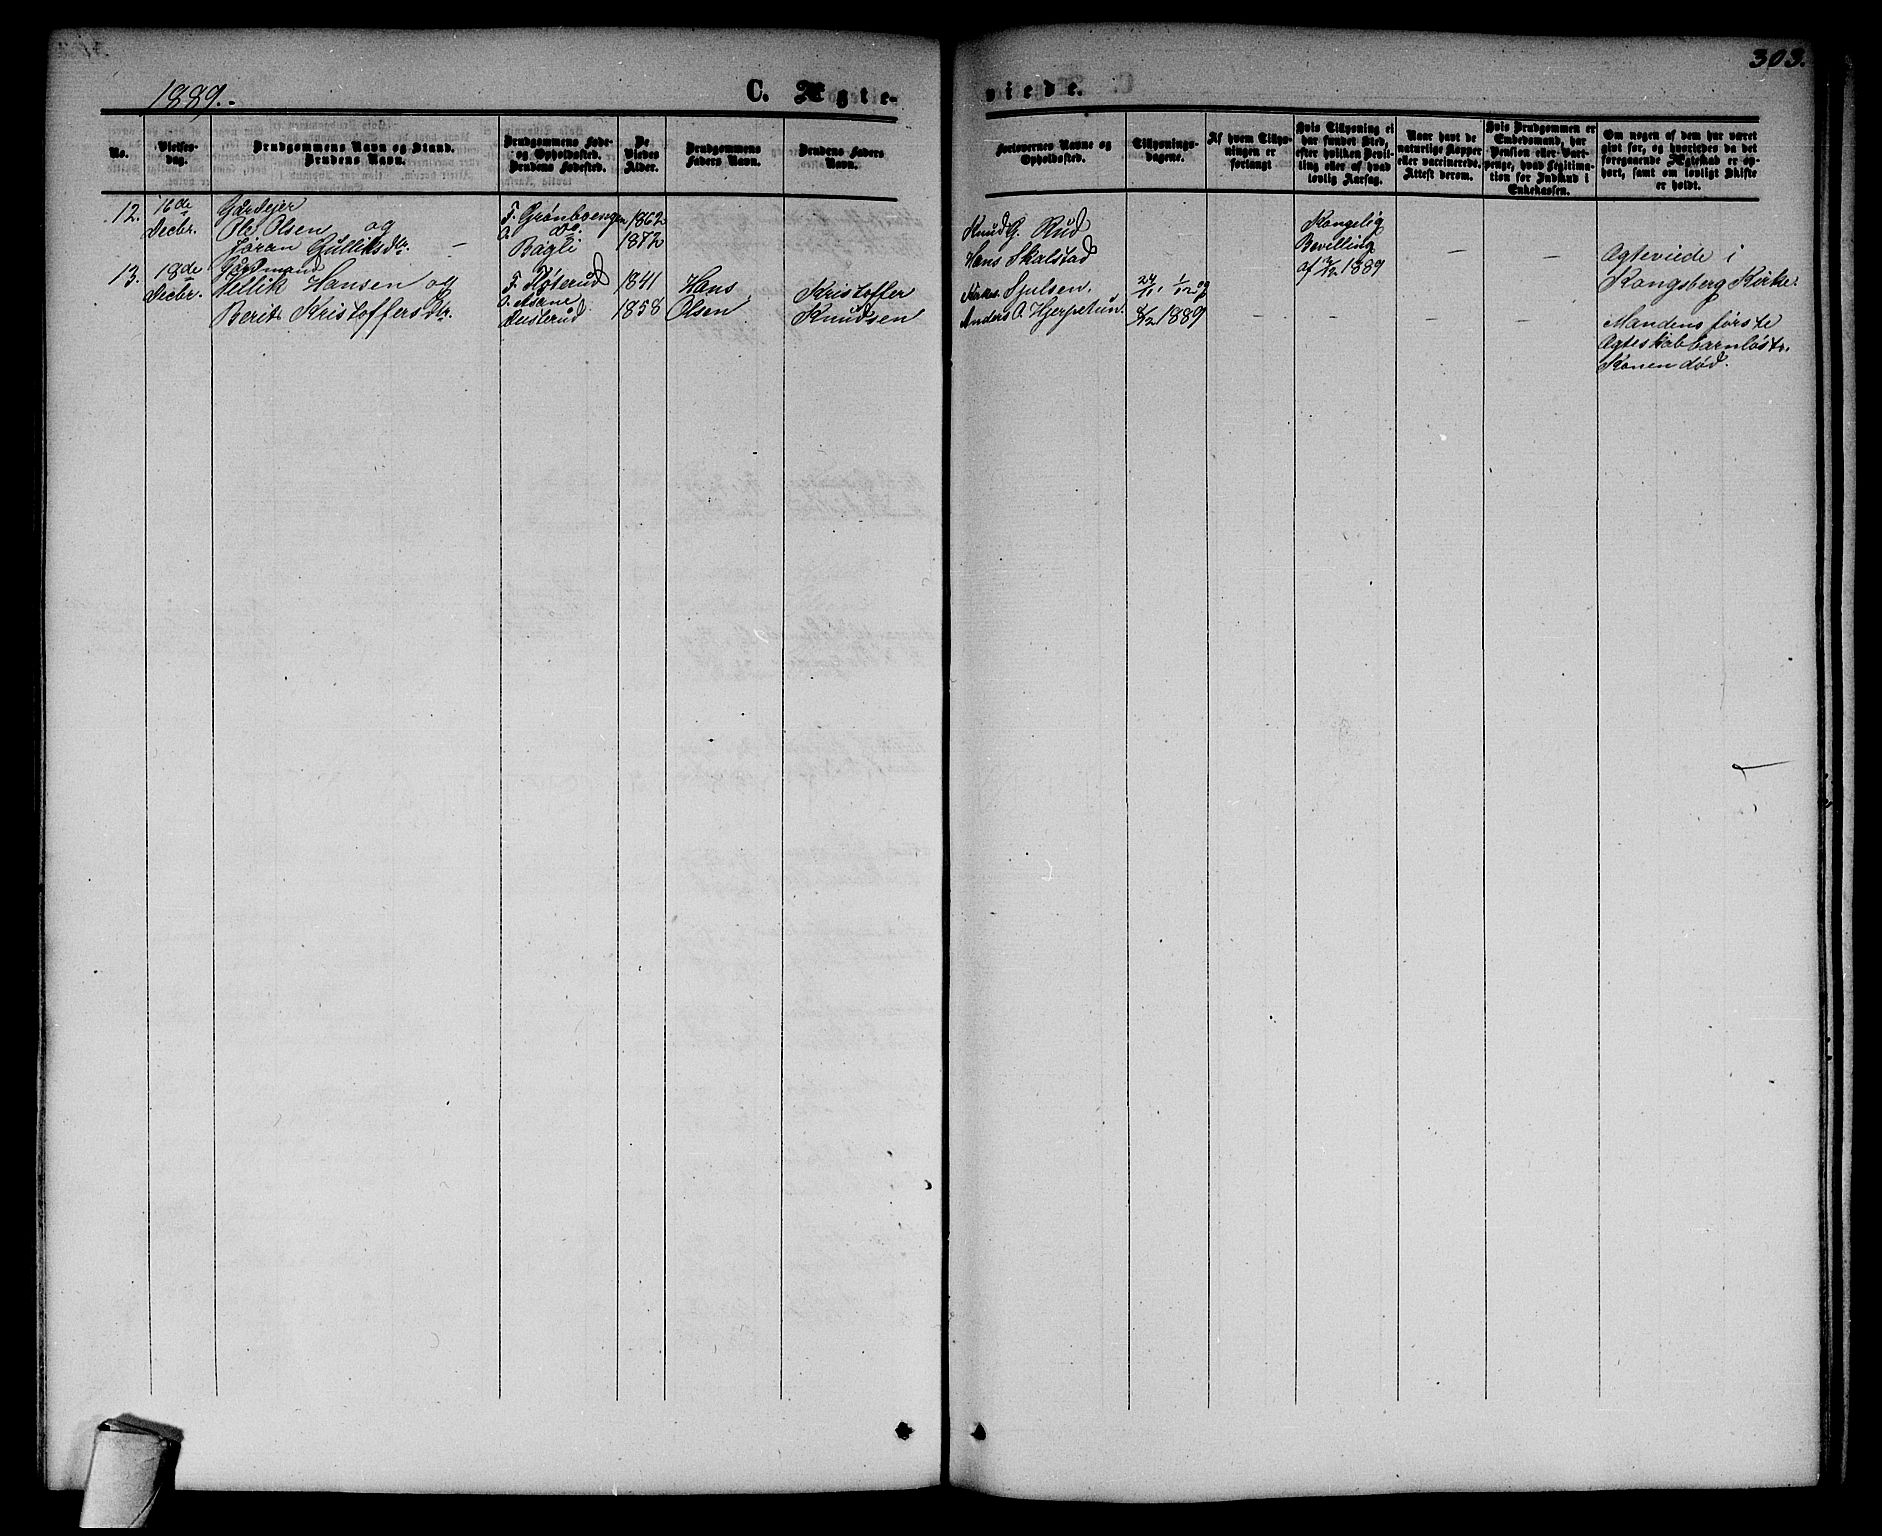 303.
1889.
C. Ægte-
viede.
No.
Vielses-
dag.
Brudgommens Navn og Stand.
Brudens Navn.
Brudgommens Føde-
og Opholdssted.
Brudens Fødested.
De
Viedes
Alder.
Brudgommens
Faders Navn.
Brudens Faders
Navn.
Forlovernes Navne og
Opholdssted.
Tillysnings-
dagene.
Af hvem Tillys-
ningen er
forlangt
Hvis Tillysning ei
har fundet Sted,
efter hvilken Bevil-
ling eller af hvad
lovlig Aarsag.
Naar havt de
naturlige Kopper
eller vaccinerede.
Attest derom.
Hvis Brudgommen er
Embedsmand, har
Pension eller Vart-
penge, hvad Legitima-
tion for Indskud i
Enkekassen.
Om nogen af dem har været
gift før, og hvorledes da det
foregaaende Ægteskab er op-
hørt, samt om lovligt Skifte
er holdt.
12.
16de
Decbr.
Gårdejer
Ole Olsen og
Jøran Gulliksdtr.
F. Grønboengen
O. do.
Bagli
1862
1872
Knud G. Rud
Hans Skalstad
Kongelig
Bevilling
af 12/12 1889
Ægteviede i
Kongsberg Kirke.
13.
18de
Decbr.
Gårdmand
Hellik Hansen og
Berit Kristoffersdtr.
F. Fløterud
O. Åsane
Dusterud
1841
1858
Hans
Olsen
Kristoffer
Knudsen
Kirkes. Sjulsen.
Anders O. Hjerpetun.
24/11, 1/12 og
8/12 1889
Mandens første
Ægteskab barnløst.
Konen død.